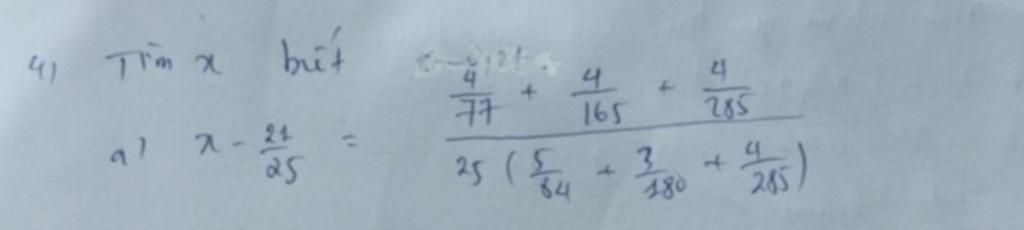 4) Tìm x biết
a) x - 21/25 = (4/77 + 4/165 + 4/285) / (25 (5/84 + 3/180 + 4/285))